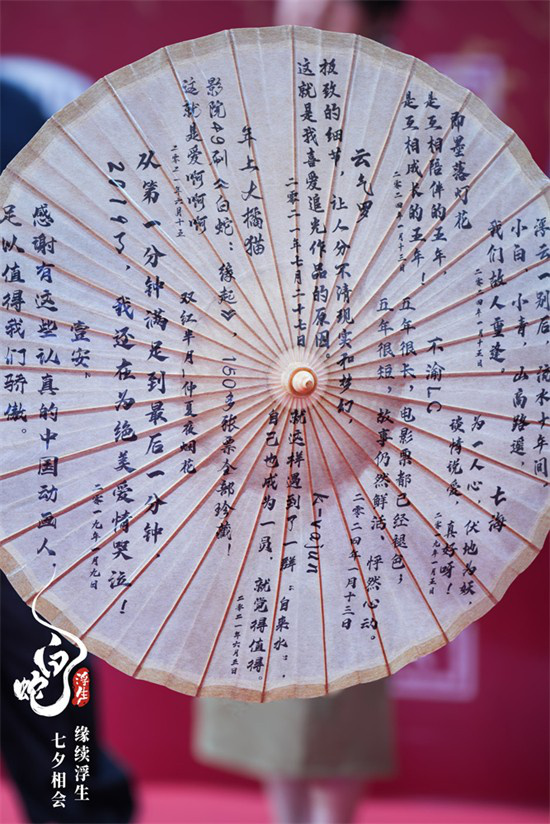 浮云一别后，流水十年间，
小白、小青，山高路遥，
我们故人重逢。
二〇二四年一月十五日
七海
为一人心，伏地为妖，
谈情说爱，真好呀！
二〇一九年一月五日
即墨落灯花
是互相陪伴的五年，
是互相成长的五年！
二〇二四年一月十三日
不渝LC
五年很长，电影票都已经褪色；
五年很短，故事仍然鲜活、怦然心动。
二〇二四年一月十三日
云气罗
极致的细节，让人分不清现实和梦幻，
这就是我喜爱追光作品的原因。
二〇二一年七月二十七日
k-vajun
就这样遇到了一群“自来水”，
自己也成为一员，就觉得值得。
二〇二一年六月五日
年上大橘猫
影院49刷《白蛇：缘起》，150多张票全部珍藏！
这就是爱啊啊啊
二〇二一年六月十五
双红半月-仲夏夜烟花
从第1分钟满足到最后一分钟，
2019了，我还在为绝美爱情哭泣！
二〇一九年一月九日
壹安、
感谢有这些认真的中国动画人，
足以值得我们骄傲。
白蛇
浮生
缘续浮生
七夕相会